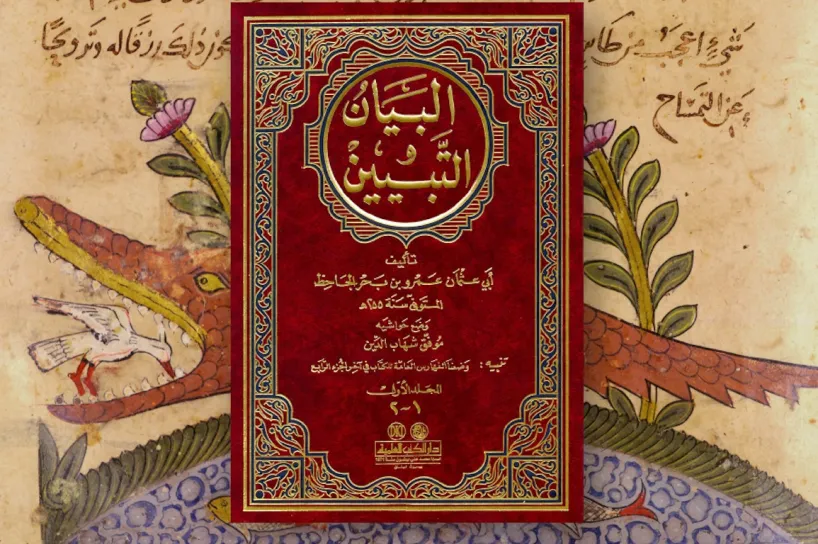 شيءٍ اعجب من طاس
عن التمساح
البَيَانُ
وَ
التَّبْيِين
تأليف
أبي عثمان عمرو بن بحر الجاحظ
المتوفى سنة ٢٥٥ هـ
وضع حواشيه
موفق شهاب الدين
تنبيه: وضعنا الفهارس العامة للكتاب في آخر الجزء الرابع
المجلد الأول
١-٢
دار الكتب العلمية